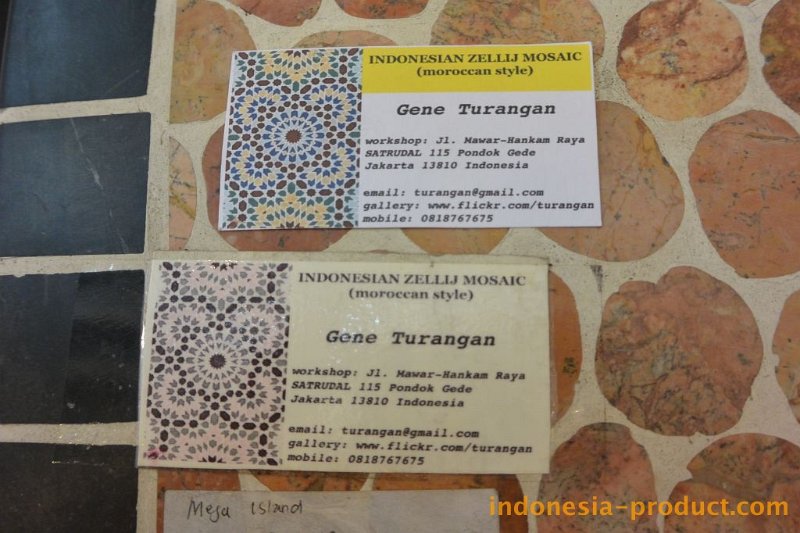 INDONESIAN ZELLIJ MOSAIC
(moroccan style)
Gene Turangan
workshop: Jl. Mawar-Hankam Raya
SATRUDAL 115 Pondok Gede
Jakarta 13810 Indonesia
email: turangan@gmail.com
gallery: www.flickr.com/turangan
mobile: 0818767675
INDONESIAN ZELLIJ MOSAIC
(moroccan style)
Gene Turangan
workshop: Jl. Mawar-Hankam Raya
SATRUDAL 115 Pondok Gede
Jakarta 13810 Indonesia
email: turangan@gmail.com
gallery: www.flickr.com/turangan
mobile: 0818767675
Meja Island
indonesia-product.com